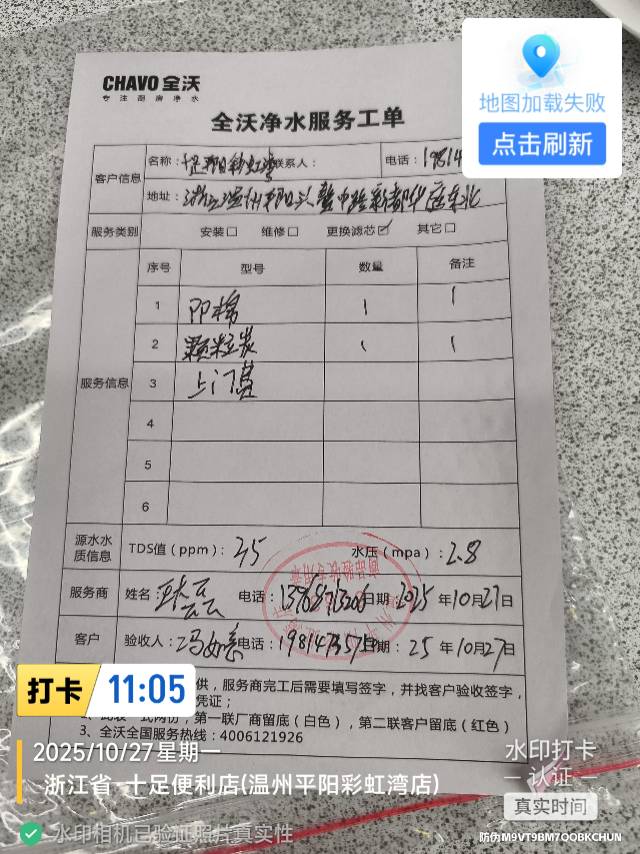 地图加载失败
点击刷新
CHAVO 全沃
专注厨房净水
全沃净水服务工单
客户信息
名称：十足平阳彩虹湾 联系人：
电话：19814
地址：浙江温州平阳 中路新都华庭东北
服务类别 安装□ 维修□ 更换滤芯☑ 其它□
服务信息
序号 型号 数量 备注
1 PP棉 1 1
2 颗粒炭 1 1
3 上门费
4
5
6
源水水质信息 TDS值（ppm）：35 水压（mpa）：2.8
服务商 姓名： 电话： 日期：2025年10月27日
客户 验收人：冯如意 电话：19814735759 日期：25年10月27日
供，服务商完工后需要填写签字，并找客户验收签字，
凭证；
第一联厂商留底（白色），第二联客户留底（红色）
3、全沃全国服务热线：4006121926
打卡 11:05
2025/10/27 星期一
浙江省 十足便利店(温州平阳彩虹湾店)
水印打卡
认证
真实时间
水印相机已验证照片真实性
防伪M9VT9BM7OOBKCHUN